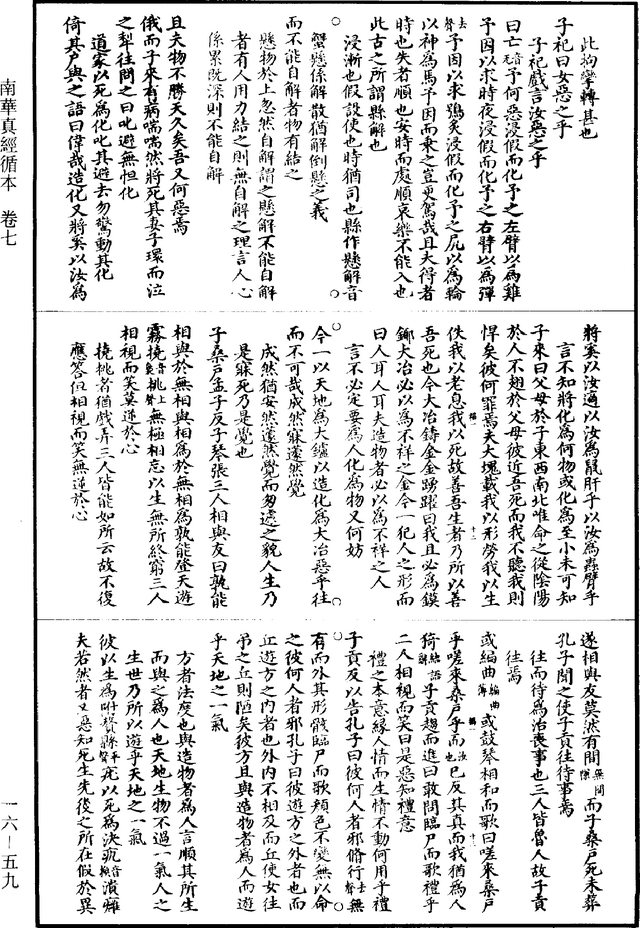 南華真經循本　卷七
一六—五九
此拘攣轉甚也
子祀曰女惡之乎
子祀戲言汝惡之乎
曰亡音無予何惡浸假而化予之左臂以為雞
予因以求時夜浸假而化予之右臂以為彈
去聲予因以求鴞炙浸假而化予之尻以為輪
以神為馬予因而乘之豈更駕哉且夫得者
時也失者順也安時而處順哀樂不能入也
此古之所謂縣解也
浸漸也假設使也時猶司也縣作懸解音
蟹懸係解散猶解倒懸之義
而不能自解者物有結之
懸物於上忽然自解謂之懸解不能自解
者有人用力結之則無自解之理言人心
係累既深則不能自解
且夫物不勝天久矣吾又何惡焉
俄而子來有病喘喘然將死其妻子環而泣
之犁往問之曰叱避無怛化
道家以死為化叱其避去勿驚動其化
倚其戶與之語曰偉哉造化又將奚以汝為
將奚以汝適以汝為鼠肝乎以汝為蟲臂乎
言不知將化為何物或化為至小未可知
子來曰父母於子東西南北唯命之從陰陽
於人不翅於父母彼近吾死而我不聽我則
悍矣彼何罪焉夫大塊載我以形勞我以生
佚我以老息我以死故善吾生者乃所以善
吾死也今大冶鑄金金踴躍曰我且必為鏌
鋣大冶必以為不祥之金今一犯人之形而
曰人耳人耳夫造物者必以為不祥之人
言不必定要為人化為物又何妨
今一以天地為大鑪以造化為大冶惡乎往
而不可哉成然寐蘧然覺
成然猶安然蘧然覺而匆遽之貌人生乃
是寐死乃是覺也
子桑戶孟子反子琴張三人相與友曰孰能
相與於無相與相為於無相為孰能登天遊
霧撓挑無極相忘以生無所終窮三人
相視而笑莫逆於心
撓挑者猶戲弄三人皆能如所云故不復
應答但相視而笑無逆於心
遂相與友莫然有間無間隙而子桑戶死未葬
孔子聞之使子貢往侍事焉
往而待為治喪事也三人皆魯人故子貢
往焉
或編曲編曲薄或鼓琴相和而歌曰嗟來桑戶
乎嗟來桑戶乎而汝也已反其真而我猶為人
猗結語辭子貢趨而進曰敢問臨尸而歌禮乎
二人相視而笑曰是惡知禮意
禮之本意緣人情而生情不動何用乎禮
子貢反以告孔子曰彼何人者邪脩行去聲無
有而外其形骸臨尸而歌顏色不變無以命
之彼何人者邪孔子曰彼遊方之外者也而
丘遊方之內者也外內不相及而丘使女往
弔之丘則陋矣彼方且與造物者為人而遊
乎天地之一氣
方者法度也與造物者為人言順其所生
而與之為人也天地生物不過一氣人之
生世乃所以遊乎天地之一氣
彼以生為附贅縣平聲疣以死為決𤴯音換潰癰
夫若然者又惡知死生先後之所在假於異